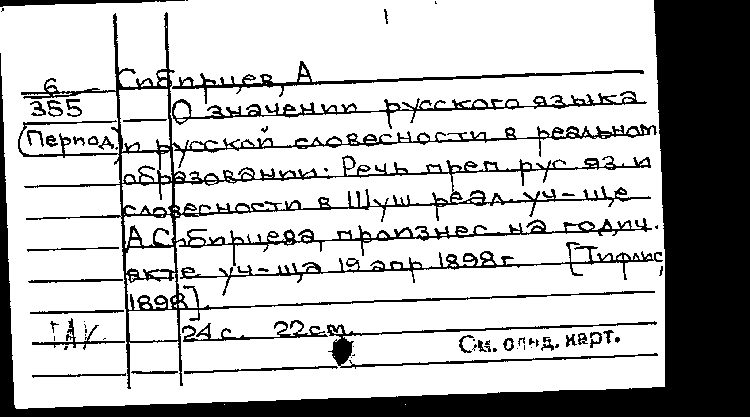 6
355
(Период.)
Сибирцев, А
О значении русского языка
и русской словесности в реальном
образовании: Речь преп. рус. яз. и
словесности в Шуш. реал. уч-ще
А. Сибирцева, произнес. на годич.
акте уч-ща 19 апр 1898 г. [Тифлис,
1898].
24 с. 22 см.
См. олнд. карт.